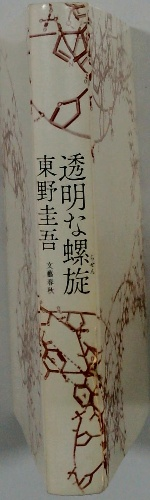 透明な螺旋
らせん
東野圭吾
文藝春秋